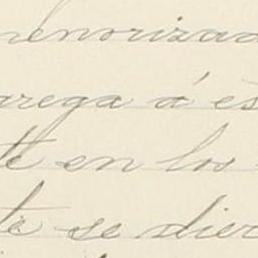 menorizad
arega á es
te en los
te se dier